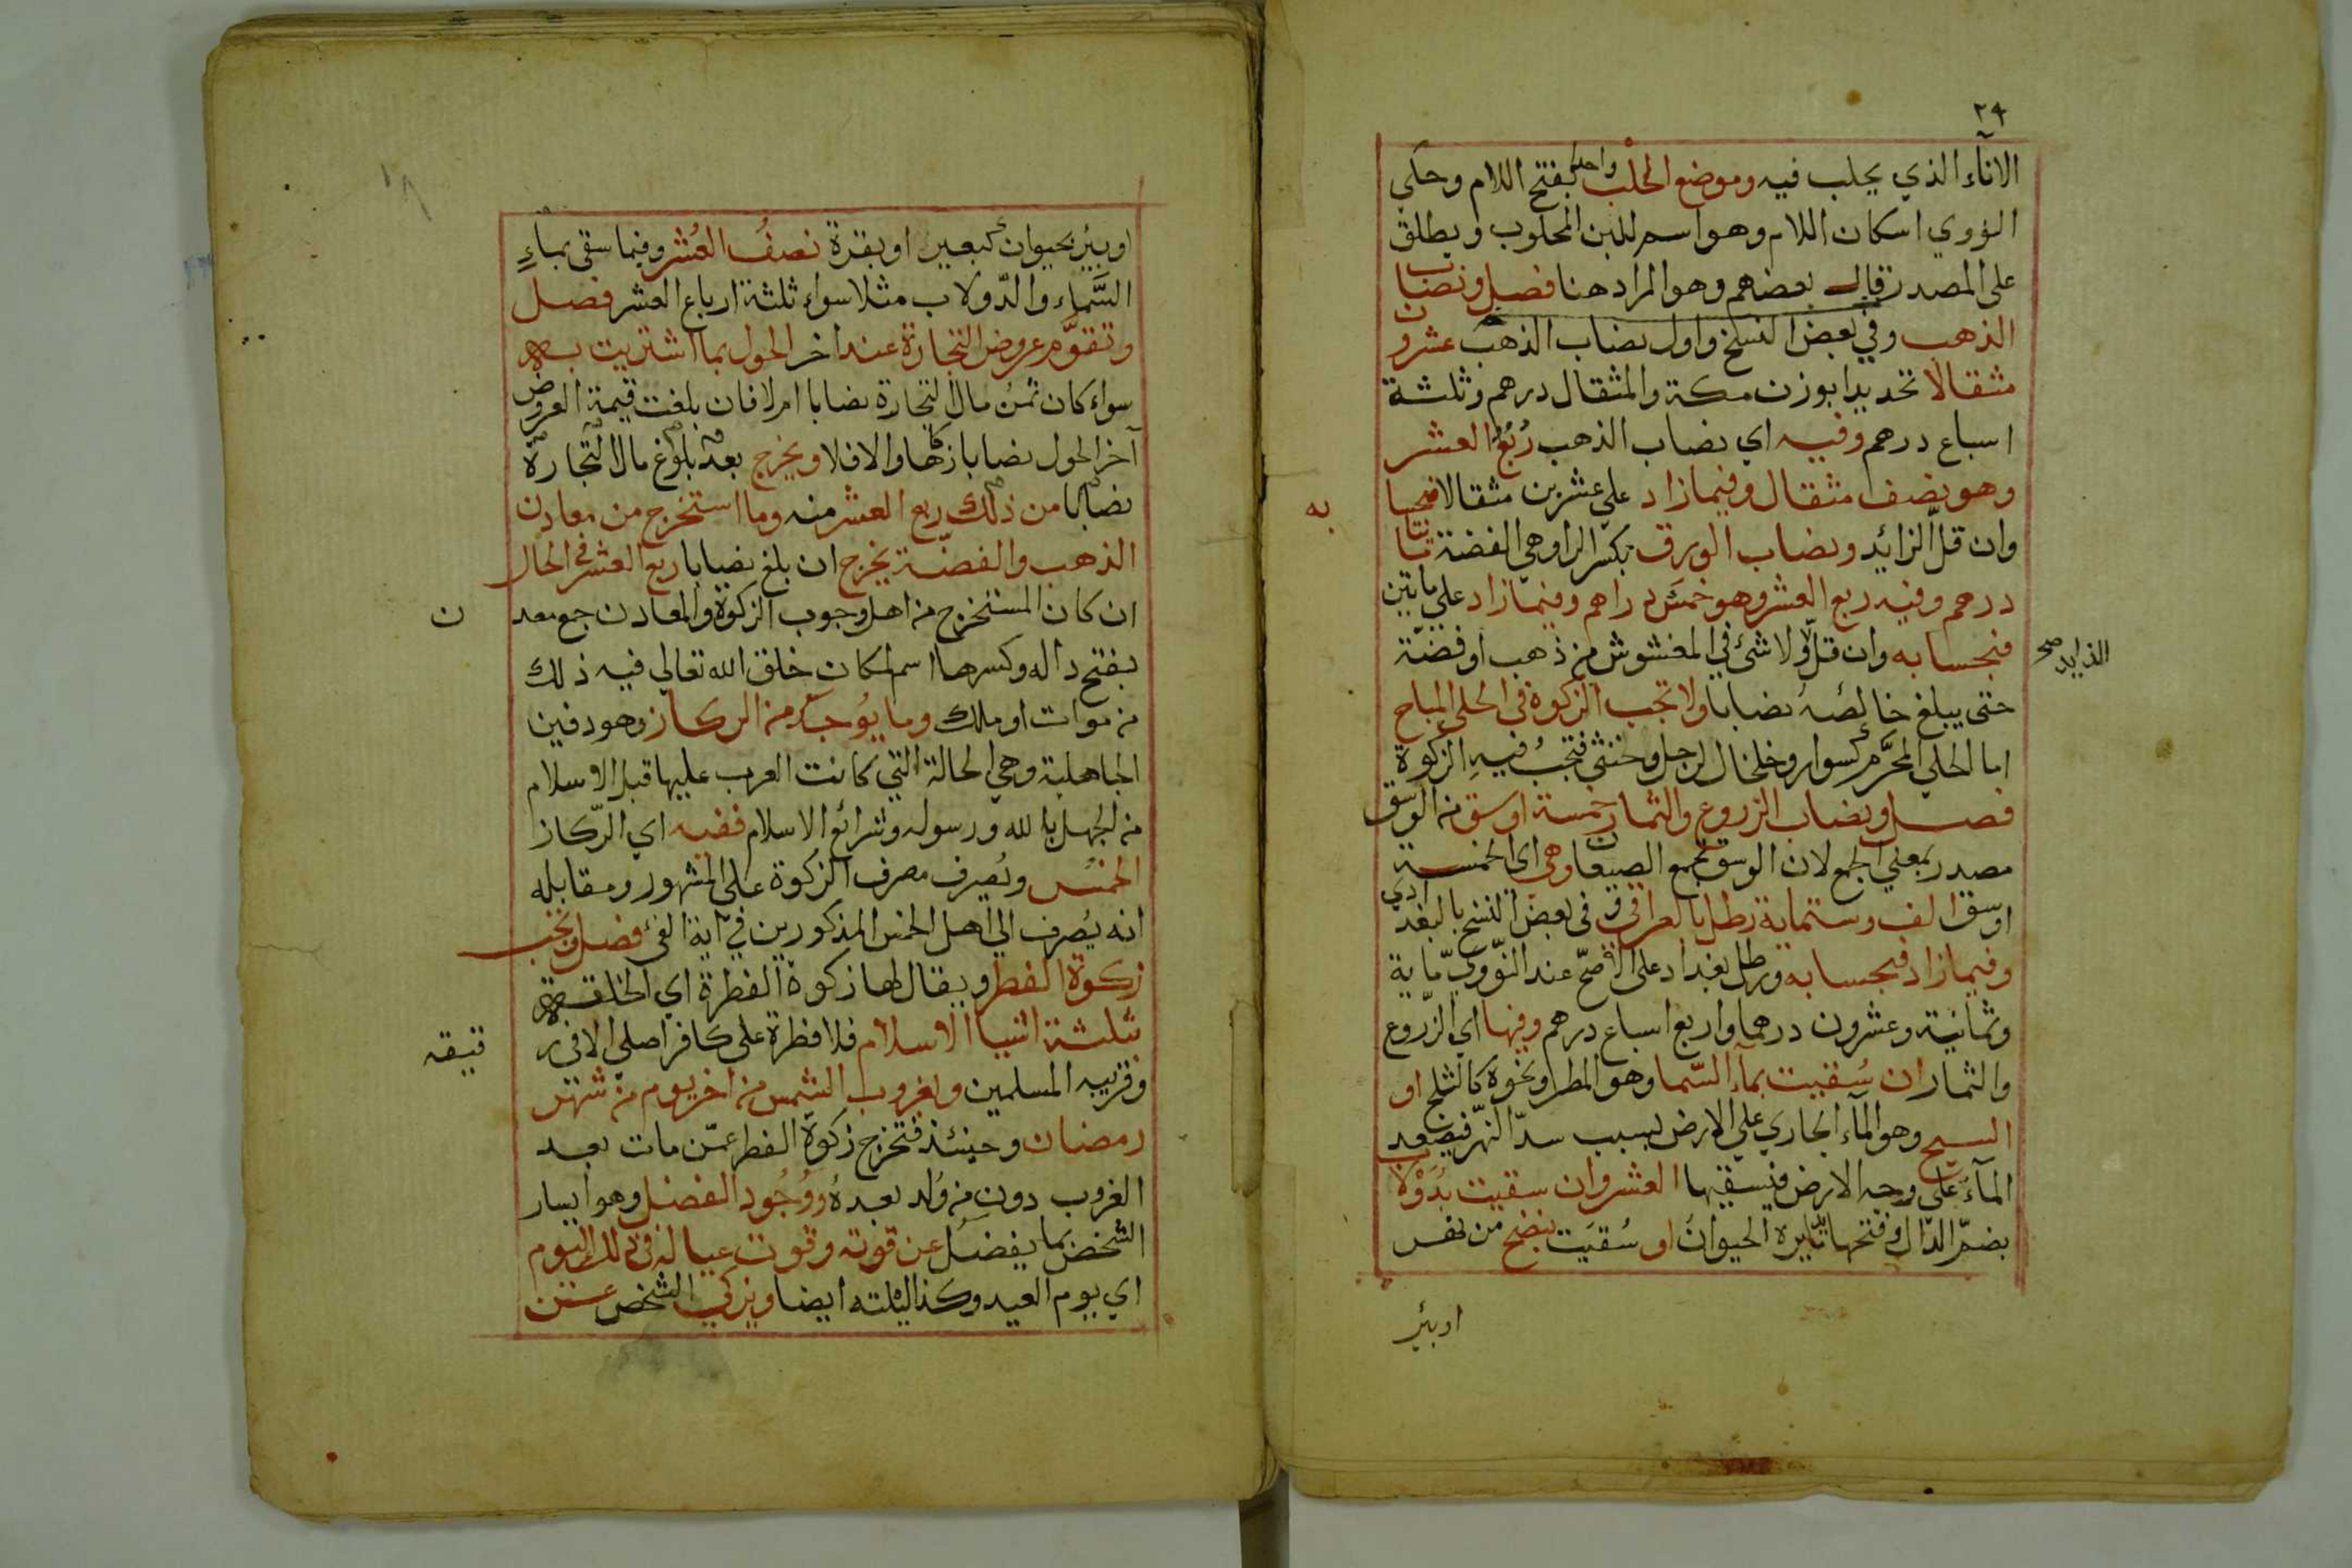 ٢٤
الاناء الذي يحلب فيه وموضع الحلب واحد بفتح اللام وحكى
النووي اسكان اللام وهو اسم للبن المحلوب ويطلق
على المصدر قال بعضهم وهو المراد هنا فصل ونصاب
الذهب وفي بعض النسخ واول نصاب الذهب عشرون
مثقالا تحديدا بوزن مكة والمثقال درهم وثلثة
اسباع درهم وفيه اي نصاب الذهب ربع العشر
وهو نصف مثقال وفيما زاد على عشرين مثقالا فبحسابه
وان قل الزائد ونصاب الورق بكسر الرا وهي الفضة مائتا
درهم وفيه ربع العشر وهو خمس دراهم وفيما زاد على مائتين
فبحسابه وان قل الزايد صح ولا شئ في المغشوش من ذهب او فضة
حتى يبلغ خالصه نصابا ولا تجب الزكوة في الحلي المباح
اما الحلي المحرم كسوار وخلخال لرجل وخنثى فتجب فيه الزكوة
فصل ونصاب الزروع والثمار خمسة اوسق من الوسق
مصدر بمعنى الجمع لان الوسق يجمع الصيعان وهي اي الخمسة
اوسق الف وستماية رطل بالعراقي وفي بعض النسخ بالبغدادي
وفيما زاد فبحسابه ورطل بغداد على الاصح عند النووي ماية
وثمانية وعشرون درهما واربع اسباع درهم وفيها اي الزروع
والثمار ان سقيت بماء السما وهو المطر ونحوه كالثلج او
السيح وهو الماء الجاري على الارض بسبب سد النهر فيصعد
الماء على وجه الارض فيسقيها العشر وان سقيت بدولاب
بضم الدال وفتحها ما يديره الحيوان او سقيت بنضح من نهر
او بئر
او ببئر بحيوان كبعير او بقرة نصف العشر وفيما سقى بماء
السماء والدولاب مثلا سواء ثلثة ارباع العشر فصل
وتقوم عروض التجارة عند اخر الحول بما اشتريت به
سواء كان ثمن مال التجارة نصابا ام لا فان بلغت قيمة العروض
آخر الحول نصابا زكاها والا فلا ويخرج بعد بلوغ مال التجارة
نصابا من ذلك ربع العشر منه وما استخرج من معادن
الذهب والفضة يخرج ان بلغ نصابا ربع العشر في الحال
ان كان المستخرج من اهل وجوب الزكوة والمعادن جمع معدن
بفتح داله وكسرها اسم لمكان خلق الله تعالى فيه ذلك
من موات او ملك وما يوجد من الركاز وهو دفين
الجاهلية وهي الحالة التي كانت العرب عليها قبل الاسلام
من الجهل بالله ورسوله وشرائع الاسلام ففيه اي الركاز
الخمس ويصرف مصرف الزكوة على المشهور ومقابله
انه يصرف الى اهل الخمس المذكورين في آية الفئ فصل وتجب
زكوة الفطر ويقال لها زكوة الفطرة اي الخلقة
بثلثة اشيا الاسلام فلا فطرة على كافر اصلي الا في رقيقه
وقريبه المسلمين وبغروب الشمس من اخر يوم من شهر
رمضان وحينئذ فتخرج زكوة الفطر عمن مات بعد
الغروب دون من ولد بعده ووجود الفضل وهو ايسار
الشخص بما يفضل عن قوته وقوت عياله في ذلك اليوم
اي يوم العيد وكذا ليلته ايضا ويزكي الشخص عن